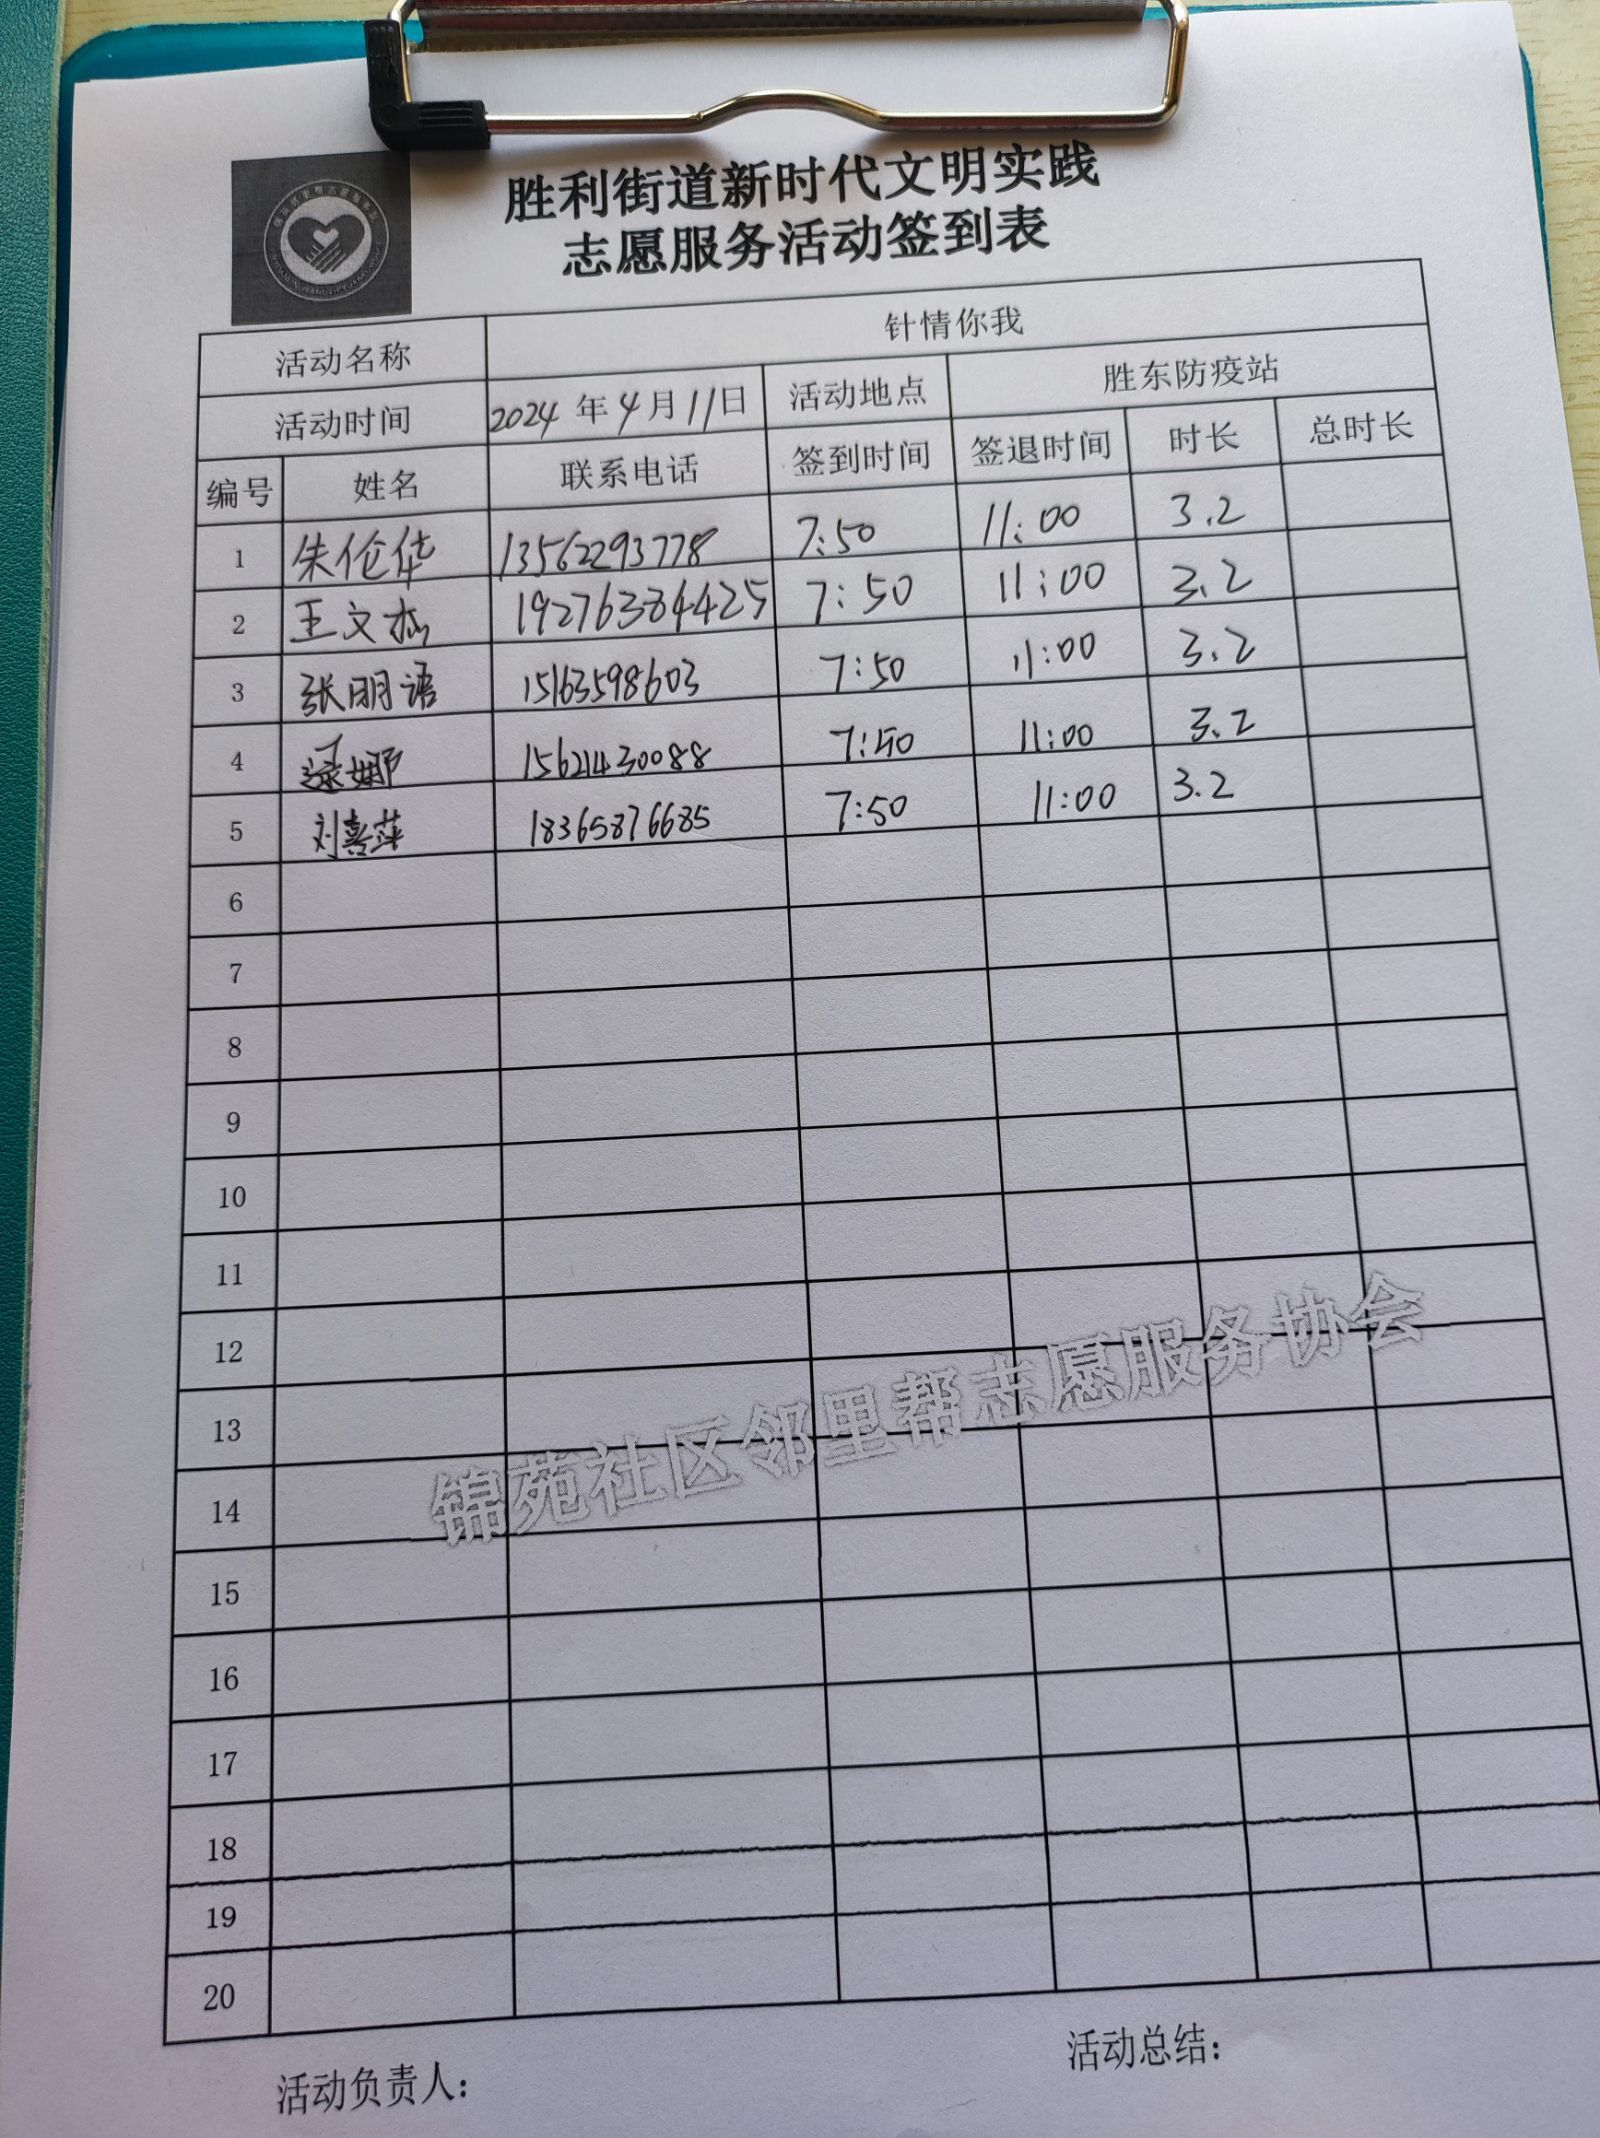 胜利街道新时代文明实践
志愿服务活动签到表
活动名称 针情你我
活动时间 2024年4月11日 活动地点 胜东防疫站
编号 姓名 联系电话 签到时间 签退时间 时长 总时长
1 朱伦华 13562293778 7:50 11:00 3.2
2 王文杰 19276384425 7:50 11:00 3.2
3 张明语 15163598603 7:50 11:00 3.2
4 逯娜 15621430088 7:50 11:00 3.2
5 刘喜萍 18365876685 7:50 11:00 3.2
6
7
8
9
10
11
12
13
14
15
16
17
18
19
20
锦苑社区邻里帮志愿服务协会
活动负责人： 活动总结：